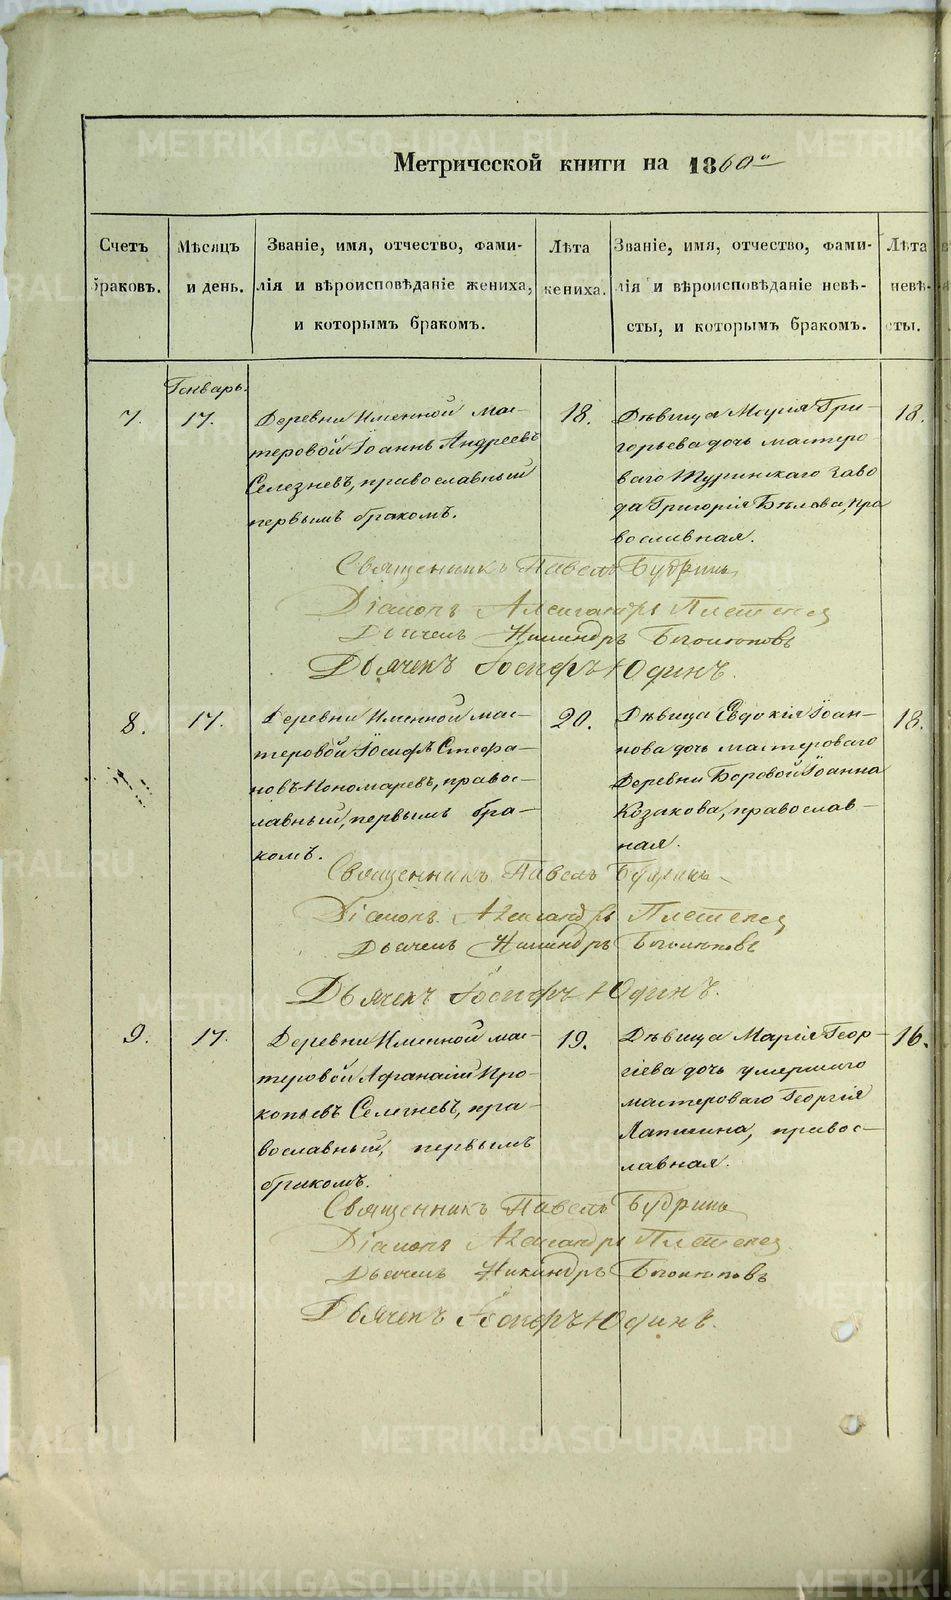 Метрической книги на 1860й
Счетъ браковъ.
Мѣсяцъ и день.
Званіе, имя, отчество, фами-
лія и вѣроисповѣданіе жениха,
и которымъ бракомъ.
Лѣта жениха.
Званіе, имя, отчество, фами-
лія и вѣроисповѣданіе невѣ-
сты, и которымъ бракомъ.
Лѣта невѣ-
сты.
Генварь.
7.
17.
Деревни Именной мас-
теровой Іоаннъ Андреевъ
Селезневъ, православный
первымъ бракомъ.
18.
Дѣвица Марія Гри-
горьева дочь мастеро
ваго Туринскаго заво
да Григорія Бѣлова, пра
вославная.
18.
Священникъ Павелъ Будринъ
Діаконъ Александръ
Дьячекъ Никандръ
Дьячекъ Іосифъ Юдинъ.
8.
17.
Деревни Именной мас-
теровой Іосифъ Стефа-
новъ Пономаревъ, правос-
лавный, первымъ бра-
комъ.
20.
Дѣвица Евдокія Іоан-
нова дочь мастероваго
Деревни Боровой Іоанна
Козакова, православ-
ная.
18.
Священникъ Павелъ Будринъ
Діаконъ Александръ
Дьячекъ Никандръ
Дьячекъ Іосифъ Юдинъ.
9.
17.
Деревни Именной мас-
теровой Афанасій Про-
копьевъ Селезневъ, пра-
вославный, первымъ
бракомъ.
19.
Дѣвица Марія Геор-
гіева дочь умершаго
мастероваго Георгія
Лапшина, правос-
лавная.
16.
Священникъ Павелъ Будринъ
Діаконъ Александръ
Дьячекъ Никандръ
Дьячекъ Іосифъ Юдинъ.
METRIKI.GASO-URAL.RU